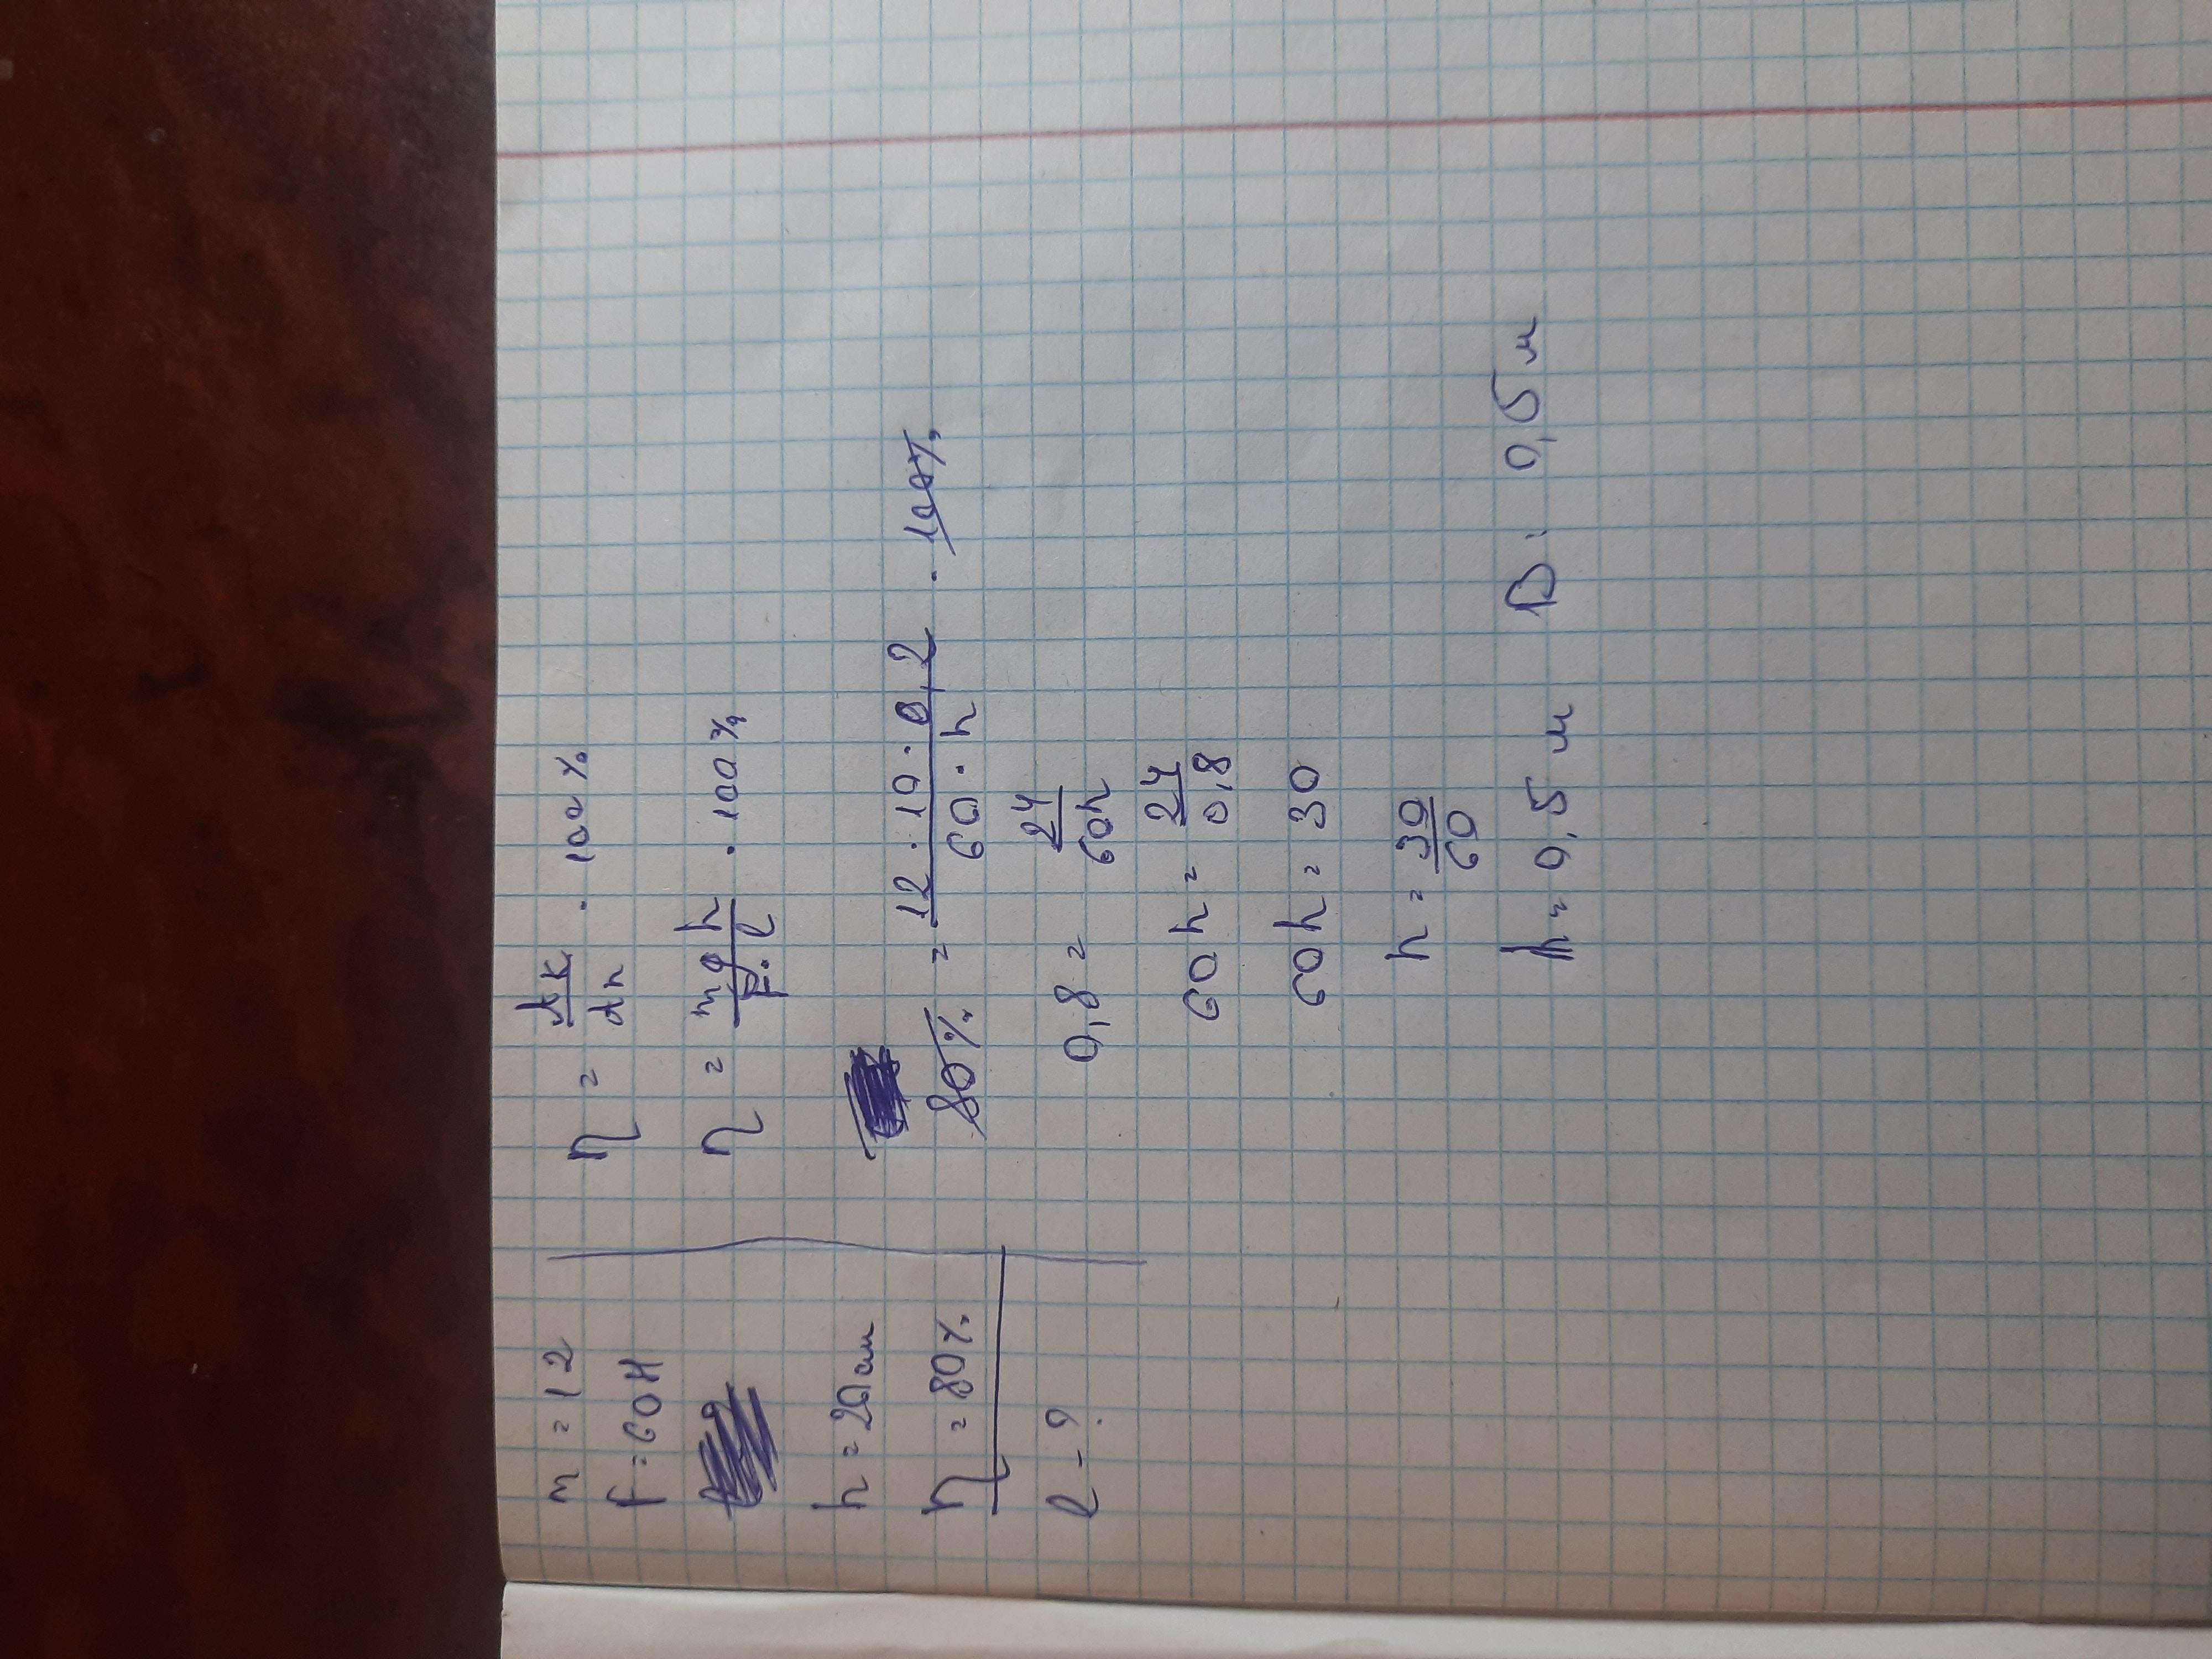 m = 12
F = 60 Н
h = 20 см
η = 80%
l - ?
η = Ак/Ап · 100%
η = mgh/F·l · 100%
80% = 12 · 10 · 0,2/60 · h · 100%
0,8 = 24/60h
60h = 24/0,8
60h = 30
h = 30/60
h = 0,5 м В: 0,5 м